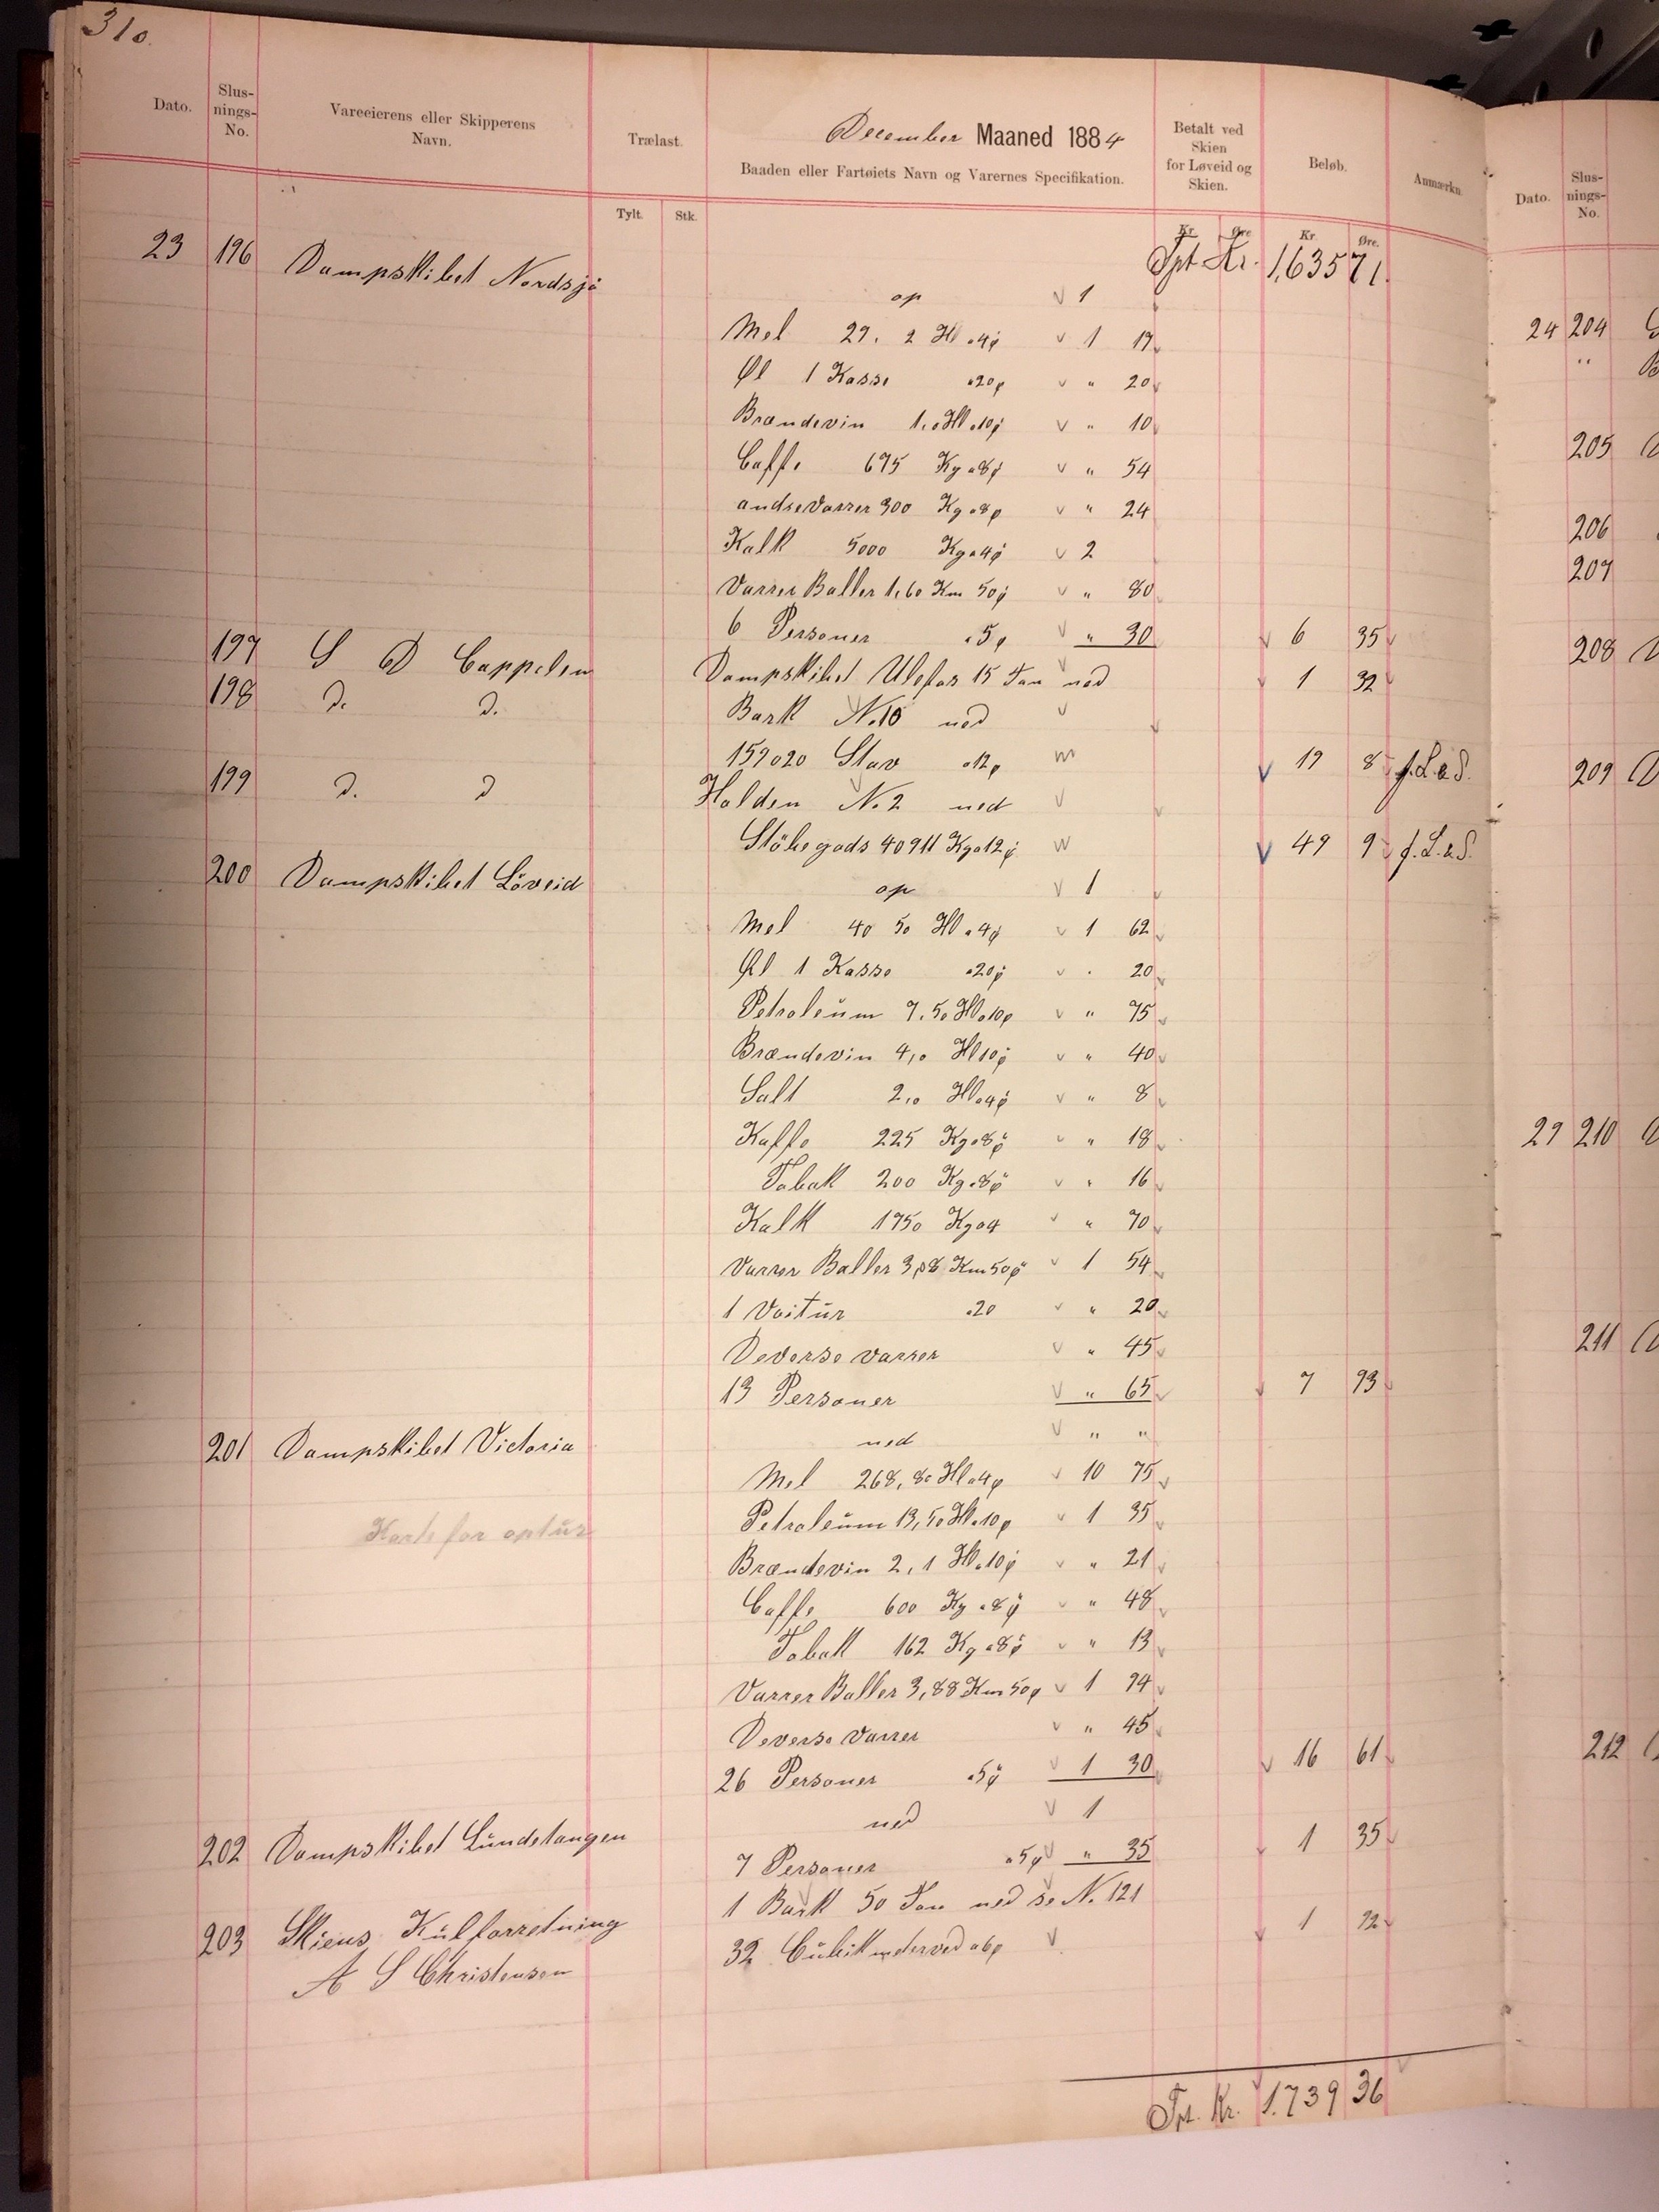 310.
Dato. Slus-nings-No. Vareeierens eller Skipperens Navn. Trælast. December Maaned 1884 Betalt ved Skien for Løveid og Skien. Beløb. Anmærkn.
Baaden eller Fartøiets Navn og Varernes Specifikation.
Tylt. Stk. Kr. Øre Kr. Øre.
Tpt Kr. 1,635 71.
23 196 Dampskibet Nordsjö op 1
Mel 29, 2 Hl a 4ø 1 17
Øl 1 Kasse a 20ø " 20
Brændevin 1,0 Hl a 10ø " 10
Caffe 675 Kg a 8ø " 54
andre Varrer 300 Kg a 8ø " 24
Kalk 5000 Kg a 4ø 2
Varrer Baller 1,60 Km 50ø " 80
6 Personer a 5ø " 30 6 35
197 S D Cappelen Dampskibet Ulefos 15 Ton ned 1 32
198 D. D. Bark N. 10 ned
159020 Stav a 12ø 19 8 f. L. & S.
199 D. D Holden N. 2 ned
Stöbegods 40911 Kg a 12ø 49 9 f. L. & S.
200 Dampskibet Löveid op 1
Mel 40 50 Hl a 4ø 1 62
Øl 1 Kasse a 20ø " 20
Petroleum 7,50 Hl a 10ø " 75
Brændevin 4,0 Hl 10ø " 40
Salt 2,0 Hl a 4ø " 8
Kaffe 225 Kg a 8ø " 18
Tobak 200 Kg a 8ø " 16
Kalk 1750 Kg a 4 " 70
Varrer Baller 3,08 Km 50ø 1 54
1 Voitur a 20 " 20
Deverse varrer " 45
13 Personer " 65 7 93
201 Dampskibet Victoria ned " "
Mel 268,80 Hl a 4ø 10 75
Korte for optur Petroleum 13,50 Hl a 10ø 1 35
Brændevin 2,1 Hl a 10ø " 21
Caffe 600 Kg a 8ø " 48
Tobak 162 Kg a 8ø " 13
Varrer Baller 3,88 Km 50ø 1 94
Deverse Varrer " 45
26 Personer a 5ø 1 30 16 61
202 Dampskibet Lundetangen ned 1
7 Personer a 5ø " 35 1 35
203 Skiens Kulforretning 1 Bark 50 Ton ned se N. 121
A S Christensen 32 Cubikmeter ved a 6ø 1 92
Tpt. Kr. 1.739 36
Dato. Slus-nings-No.
24 204
"
205
206
207
208
209
29 210
211
212